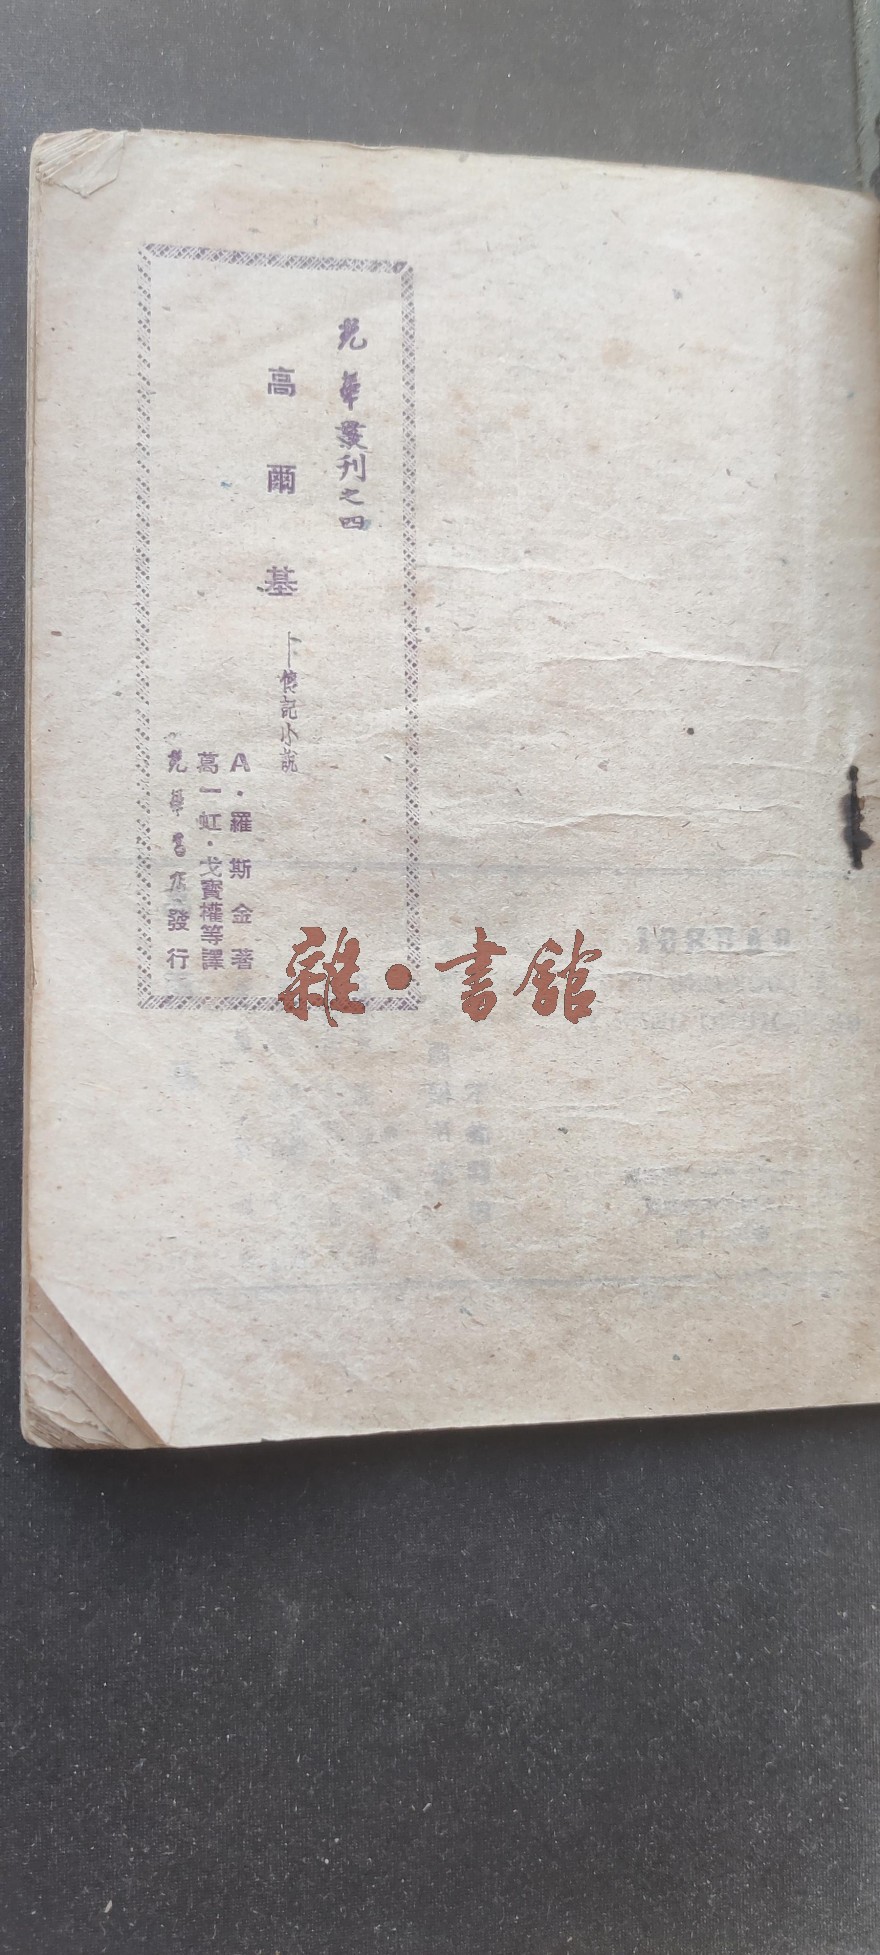 光華叢刊之四
高爾基
—傳記小說
A·羅斯金著
葛一虹·戈寶權等譯
光華書店發行
雜·書館